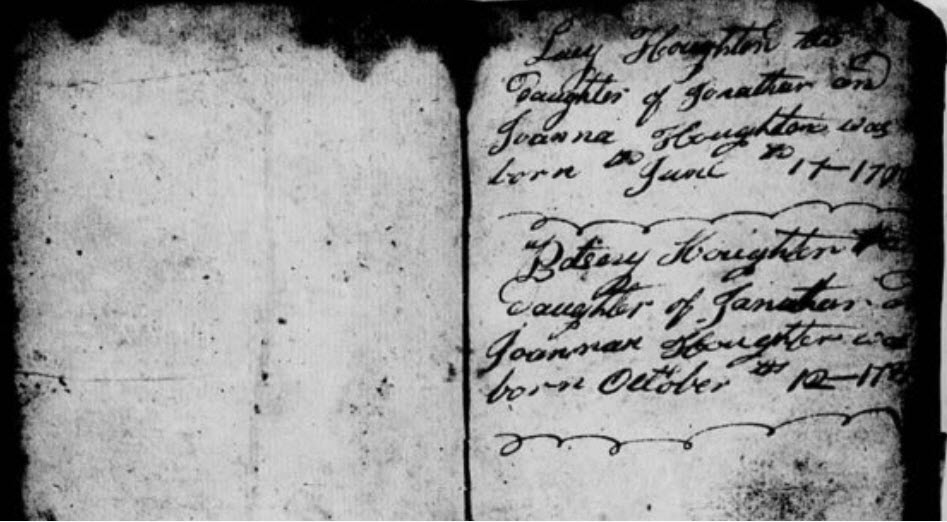 Lucy Houghton the
daughter of Jonathan and
Joanna Houghton was
born th June th 17—17
Betsey Houghton the
daughter of Janathan
Joannah Houghton was
born October th 12—17